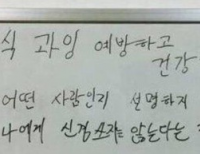 식 과잉 예방하고
건강
어떤 사람인지 설명하지
나에게 신경 쓰지 않는다는